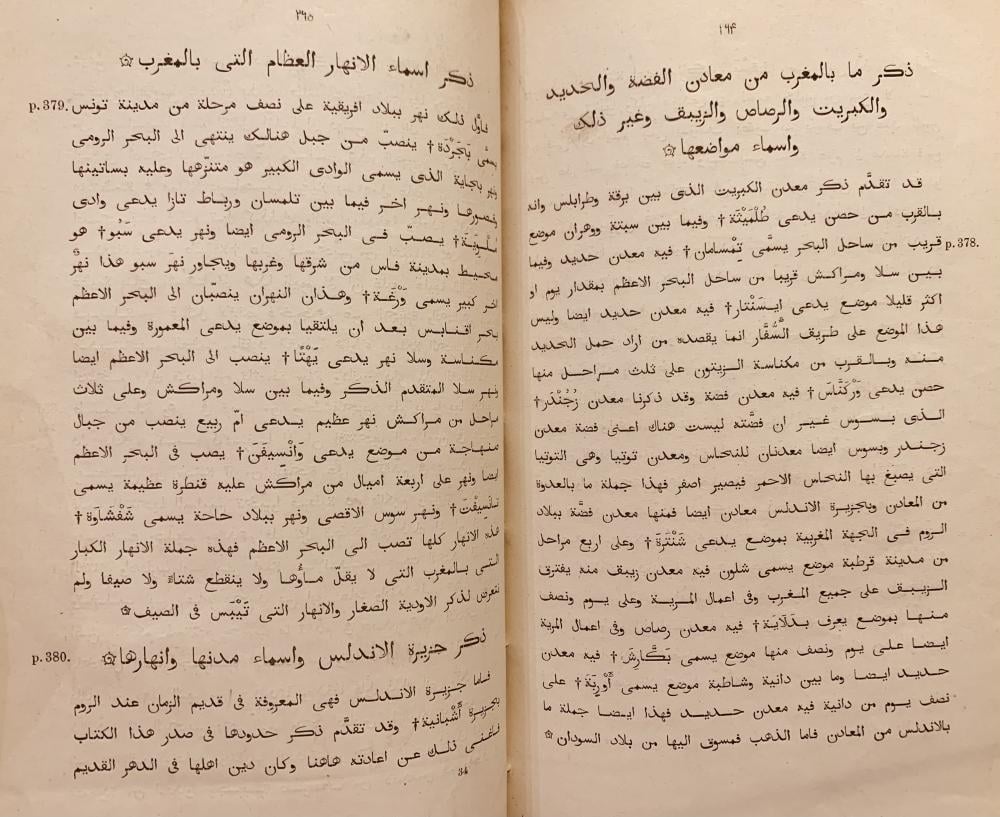 ١٩٤
ذكر ما بالمغرب من معادن الفضة والحديد
والكبريت والرصاص والزيبف وغير ذلك
واسماء مواضعها
قد تقدَّم ذكر معدن الكبريت الذى بين برقة وطرابلس وانه
بالقرب من حصن يدعى طُلْمَيْثَة† وفيما بين سبتة ووهران موضع
قريب من ساحل البحر يسمَّى تِمْسامان† فيه معدن حديد وفيما p.378.
بين سلا ومراكش قريبا من ساحل البحر الاعظم بمقدار يوم او
اكثر قليلا موضع يدعى ايسَنْتار† فيه معدن حديد ايضا وليس
هذا الموضع على طريف السُّفَّار انما يقصده من اراد حمل الحديد
منه وبالقرب من مكناسة الزيتون على ثلث مراحل منها
حصن يدعى وَرْكَنَّاسَ† فيه معدن فضة وقد ذكرنا معدن زُجُنْدَر†
الذى بسوس غير ان فضّته ليست هناك اعنى فضة معدن
زجندر وبسوس ايضا معدنان للنحاس ومعدن توتيا وهى التوتيا
التى يصبغ بها النحاس الاحمر فيصير اصفر فهذا جملة ما بالعدوة
من المعادن وبجزيرة الاندلس معادن ايضا فمنها معدن فضَّة ببلاد
الروم فى الجهة المغربية بموضع يدعى شَنْتَرَة† وعلى اربع مراحل
من مدينة قرطبة موضع يسمى شلون فيه معدن زيبف منه يفترف
الزيبف على جميع المغرب وفى اعمال المرية وعلى يوم ونصف
منها بموضع يعرف بدَلايَة† فيه معدن رصاص وفى اعمال المرية
ايضا على يوم ونصف منها موضع يسمى بَكّارِش† فيه معدن
حديد ايضا وما بين دانية وشاطبة موضع يسمى أَوْرِبَة† على
نصف يوم من دانية فيه معدن حديد فهذا ايضا جملة ما
بالاندلس من المعادن فاما الذهب فمسوق اليها من بلاد السودان
٣٩٥
ذكر اسماء الانهار العظام التى بالمغرب
p.379. فاوَّل ذلك نهر ببلاد افريقية على نصف مرحلة من مدينة تونس
يسمَّى بَاجَرْدَة† ينصبّ من جبل هنالك ينتهى الى البحر الرومى
ونهر باجاية الذى يسمى الوادى الكبير هو متنزّهها وعليه بساتينها
وقصورها ونهر اخر فيما بين تلمسان ورباط تازا يدعى وادى
يصبّ فى البحر الرومى ايضا ونهر يدعى سَبُو† هو
محيط بمدينة فاس من شرقها وغربها ويجاور نهرَ سبو هذا نهرٌ
اخر كبير يسمى وَرْغَة† وهذان النهران ينصبّان الى البحر الاعظم
بحر اقنابس بعد ان يلتقيا بموضع يدعى المعمورة وفيما بين
مكناسة وسلا نهر يدعى يَهْتَا† ينصب الى البحر الاعظم ايضا
ونهر سلا المتقدم الذكر وفيما بين سلا ومراكش وعلى ثلاث
مراحل من مراكش نهر عظيم يدعى امّ ربيع ينصب من جبال
صنهاجة من موضع يدعى وَانْسِيفَن† يصب فى البحر الاعظم
ايضا ونهر على اربعة اميال من مراكش عليه قنطرة عظيمة يسمى
تَانْسِيفْت† ونهر سوس الاقصى ونهر ببلاد حاحة يسمى شَفْشَاوَة†
هذه الانهار كلها تصب الى البحر الاعظم فهذه جملة الانهار الكبار
التى بالمغرب التى لا يقلّ ماؤها ولا ينقطع شتاءً ولا صيفا ولم
نتعرض لذكر الاودية الصغار والانهار التى تَيْبَس فى الصيف
p.380. ذكر جزيرة الاندلس واسماء مدنها وانهارها
فاما جزيرة الاندلس فهى المعروفة فى قديم الزمان عند الروم
بجزيرة أَشْبانية† وقد تقدَّم ذكر حدودها فى صدر هذا الكتاب
فاغنى ذلك عن اعادته هاهنا وكان دين اهلها فى الدهر القديم
34